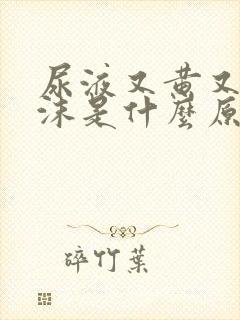 尿液又黄又
沫是什麼原
碎竹葉